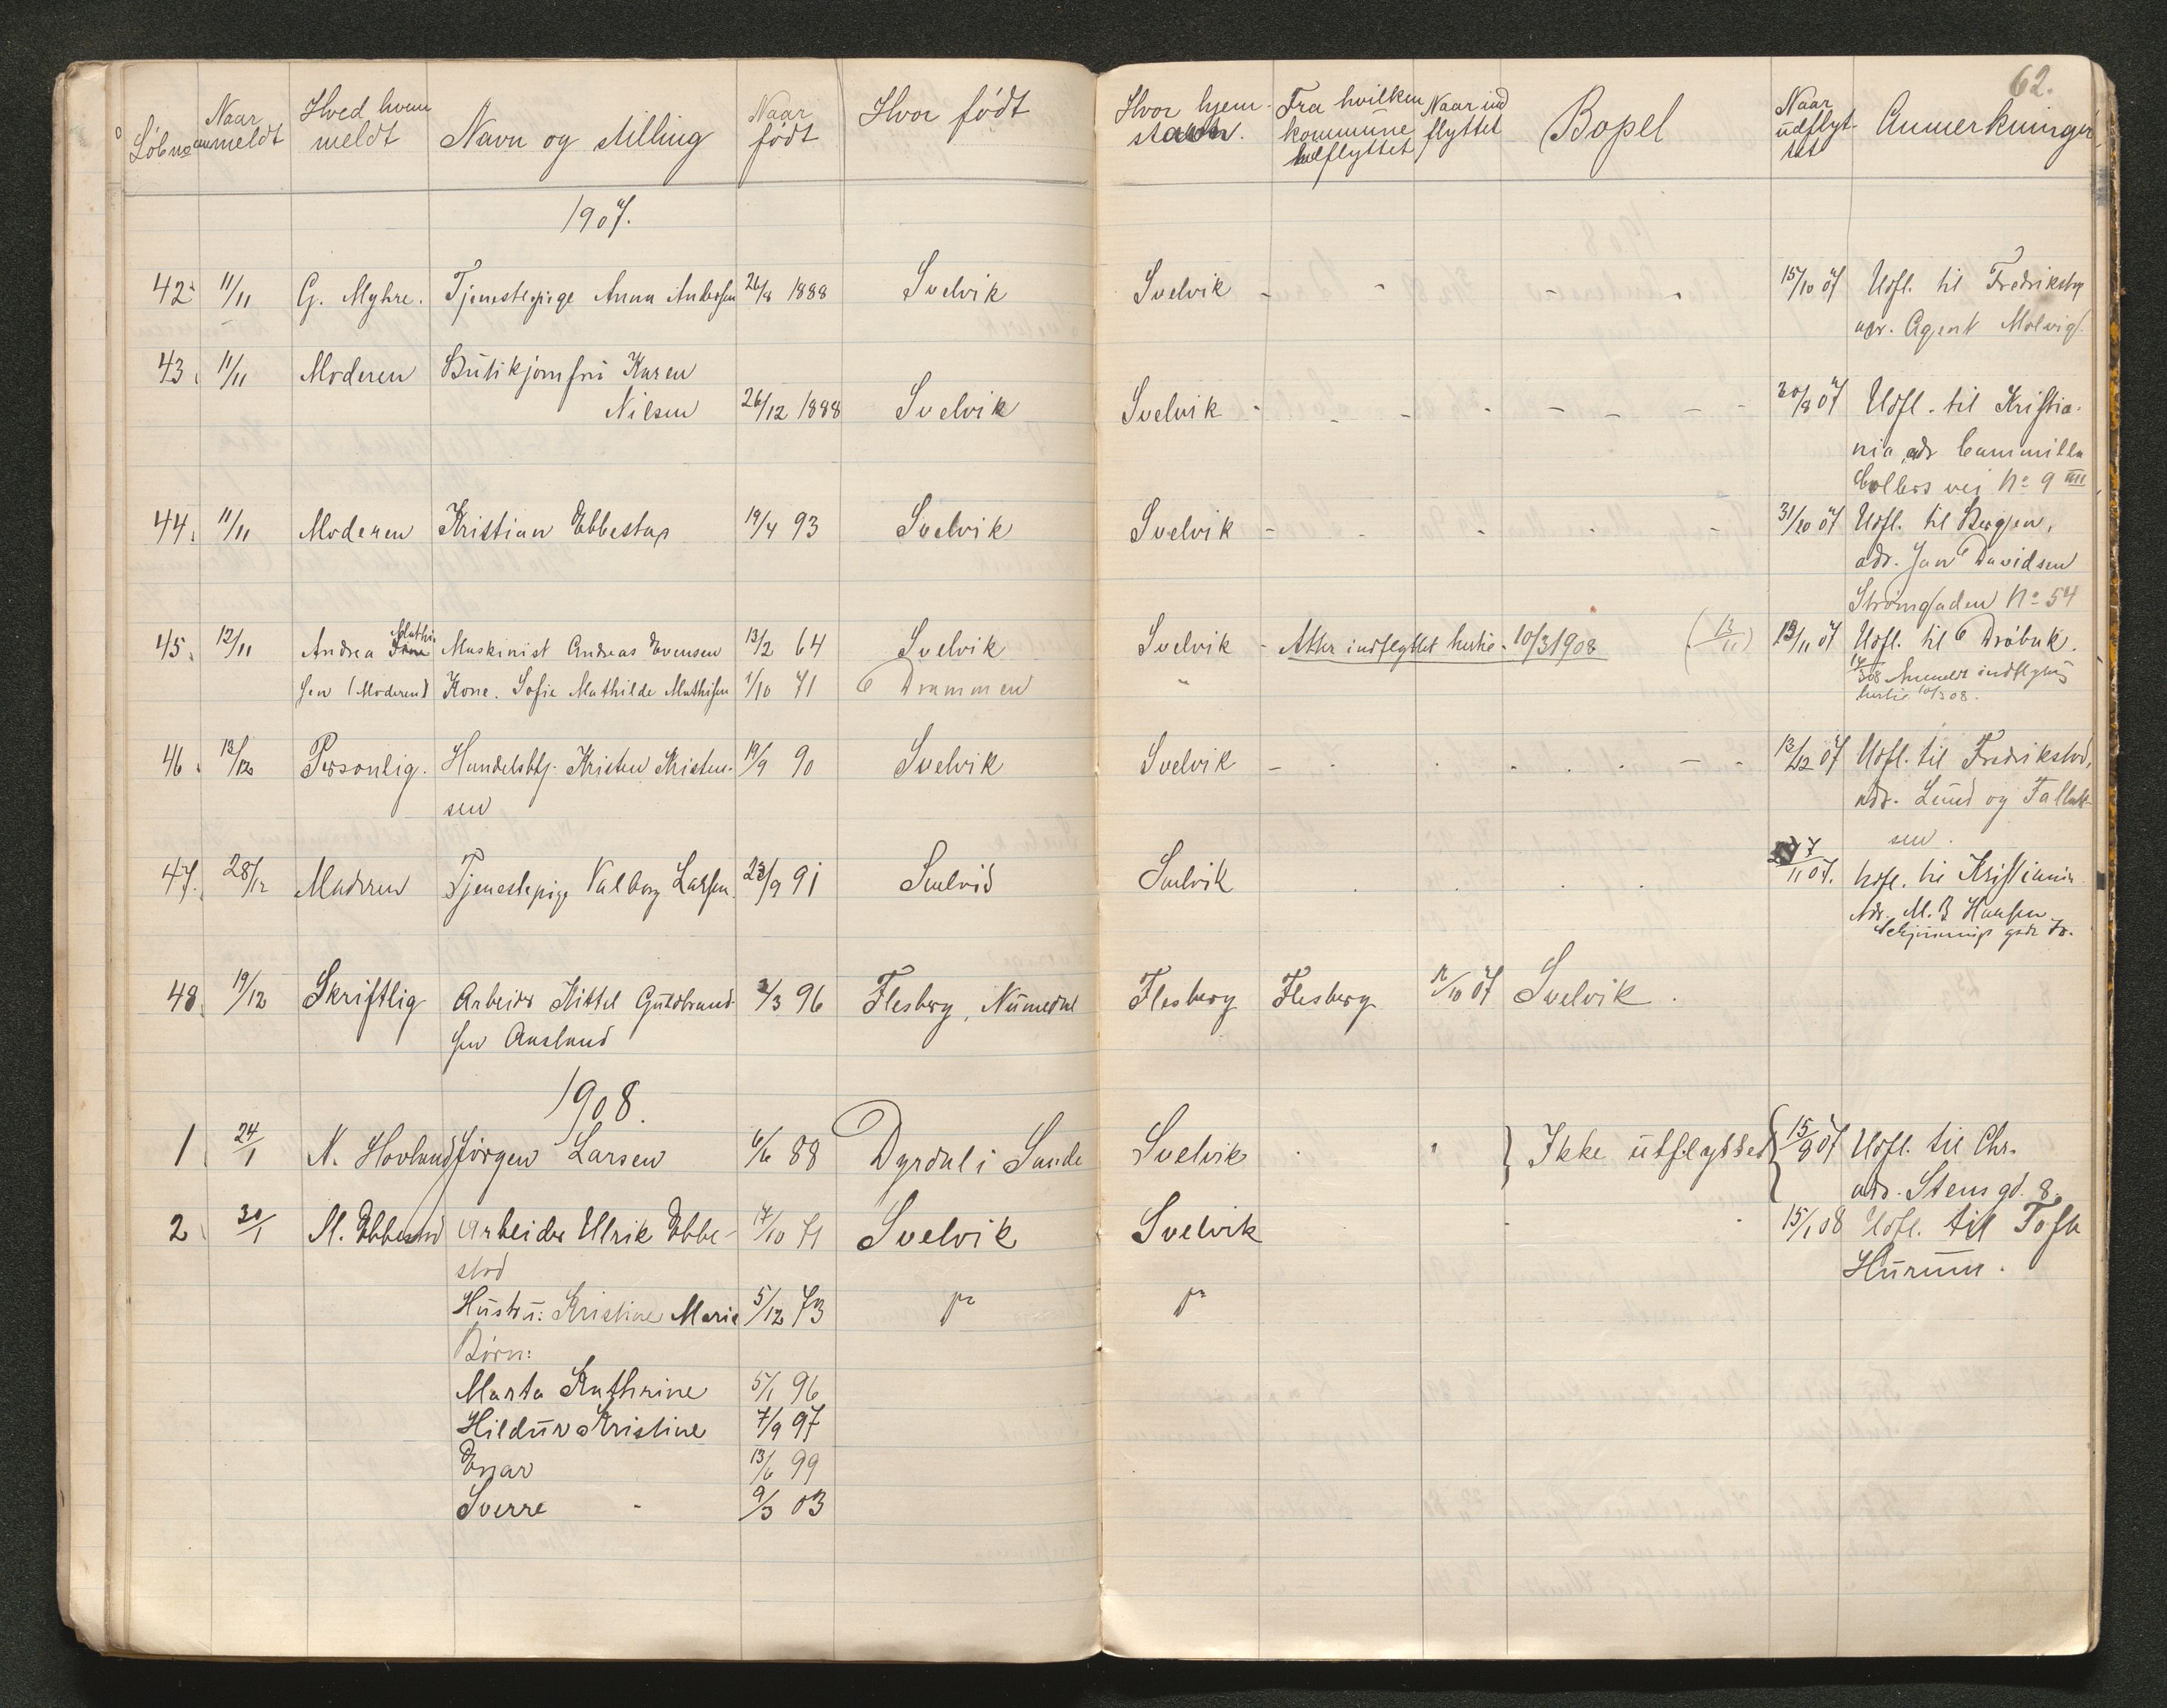 62.
Löbno Naar anmeldt Hved hvem meldt Navn og stilling Naar födt Hvor födt Hvor hjem- Fra hvilken kommune Naar ind flyttet Bopel Naar udflyt- tet Anmerkninger
1907.
42 11/11 G. Myhre. Tjenestepige Anna Andersen 26/8 1888 Svelvik Svelvik - - - - 15/10 07 Udfl. til
adr. Agent Molvig.
43. 11/11 Moderen Butikjomfru Karen
Nilsen 26/12 1888 Svelvik Svelvik - - - - - - - - 30/8 07 Udfl. til Kristia-
nia, adr Cammilla
Collets vei No 9 III
44. 11/11 Moderen Kristian Ebbestad 19/4 93 Svelvik Svelvik - - - - - 31/10 07 Udfl. til Bergen,
adr. Jan Davidsen
Strömgaden No 54
45. 12/11 Andrea Mathi Maskinist Andreas Evensen 13/2 64 Svelvik Svelvik - Atter indflyttet hertil 10/3 1908 (12/11) 13/11 07 Udfl. til Dröbak.
sen (Moderen) Kone. Sofie Mathilde Mathisen 1/10 71 Drammen " 17/3 08 Anmeldt
hertil 10/3 08.
46. 13/12 Personlig. Handelsbtj. Kristen Kristen- 19/9 90 Svelvik Svelvik - - - - - - 12/12 07 Udfl. til Fredrikstad,
sen adr. Lund og Fallak-
sen.
47. 28/12 Moderen Tjenestepige Valborg Larsen. 23/9 91 Svelvik 07. Udfl. til Kristiania
Adr. M. B Hansen
48. 19/12 Skriftlig Arbeider Kittel Guldbrand- 3/3 96 Flesberg, Numedal Flesberg Flesberg 07 Svelvik.
sen Aasland
1908.
1. 24/1 N. Hovland Jörgen Larsen 6/6 88 Dyrdal i Sande Svelvik " } Ikke utflyttet { 15/9 07 Udfl. til Chr.
adr. Stensgd. 8.
2. 30/1 M. Ebbestad Arbeider Ulrik Ebbe- 17/10 71 Svelvik Svelvik - - 15/1 08 Udfl. til Tofte
stad Hurum.
Hustru: Kristine Marie 5/12 73
Börn:
Marta Kathrine 5/1 96
Hildur Kristine 7/9 97
Enar 13/6 99
Sverre - 9/3 03